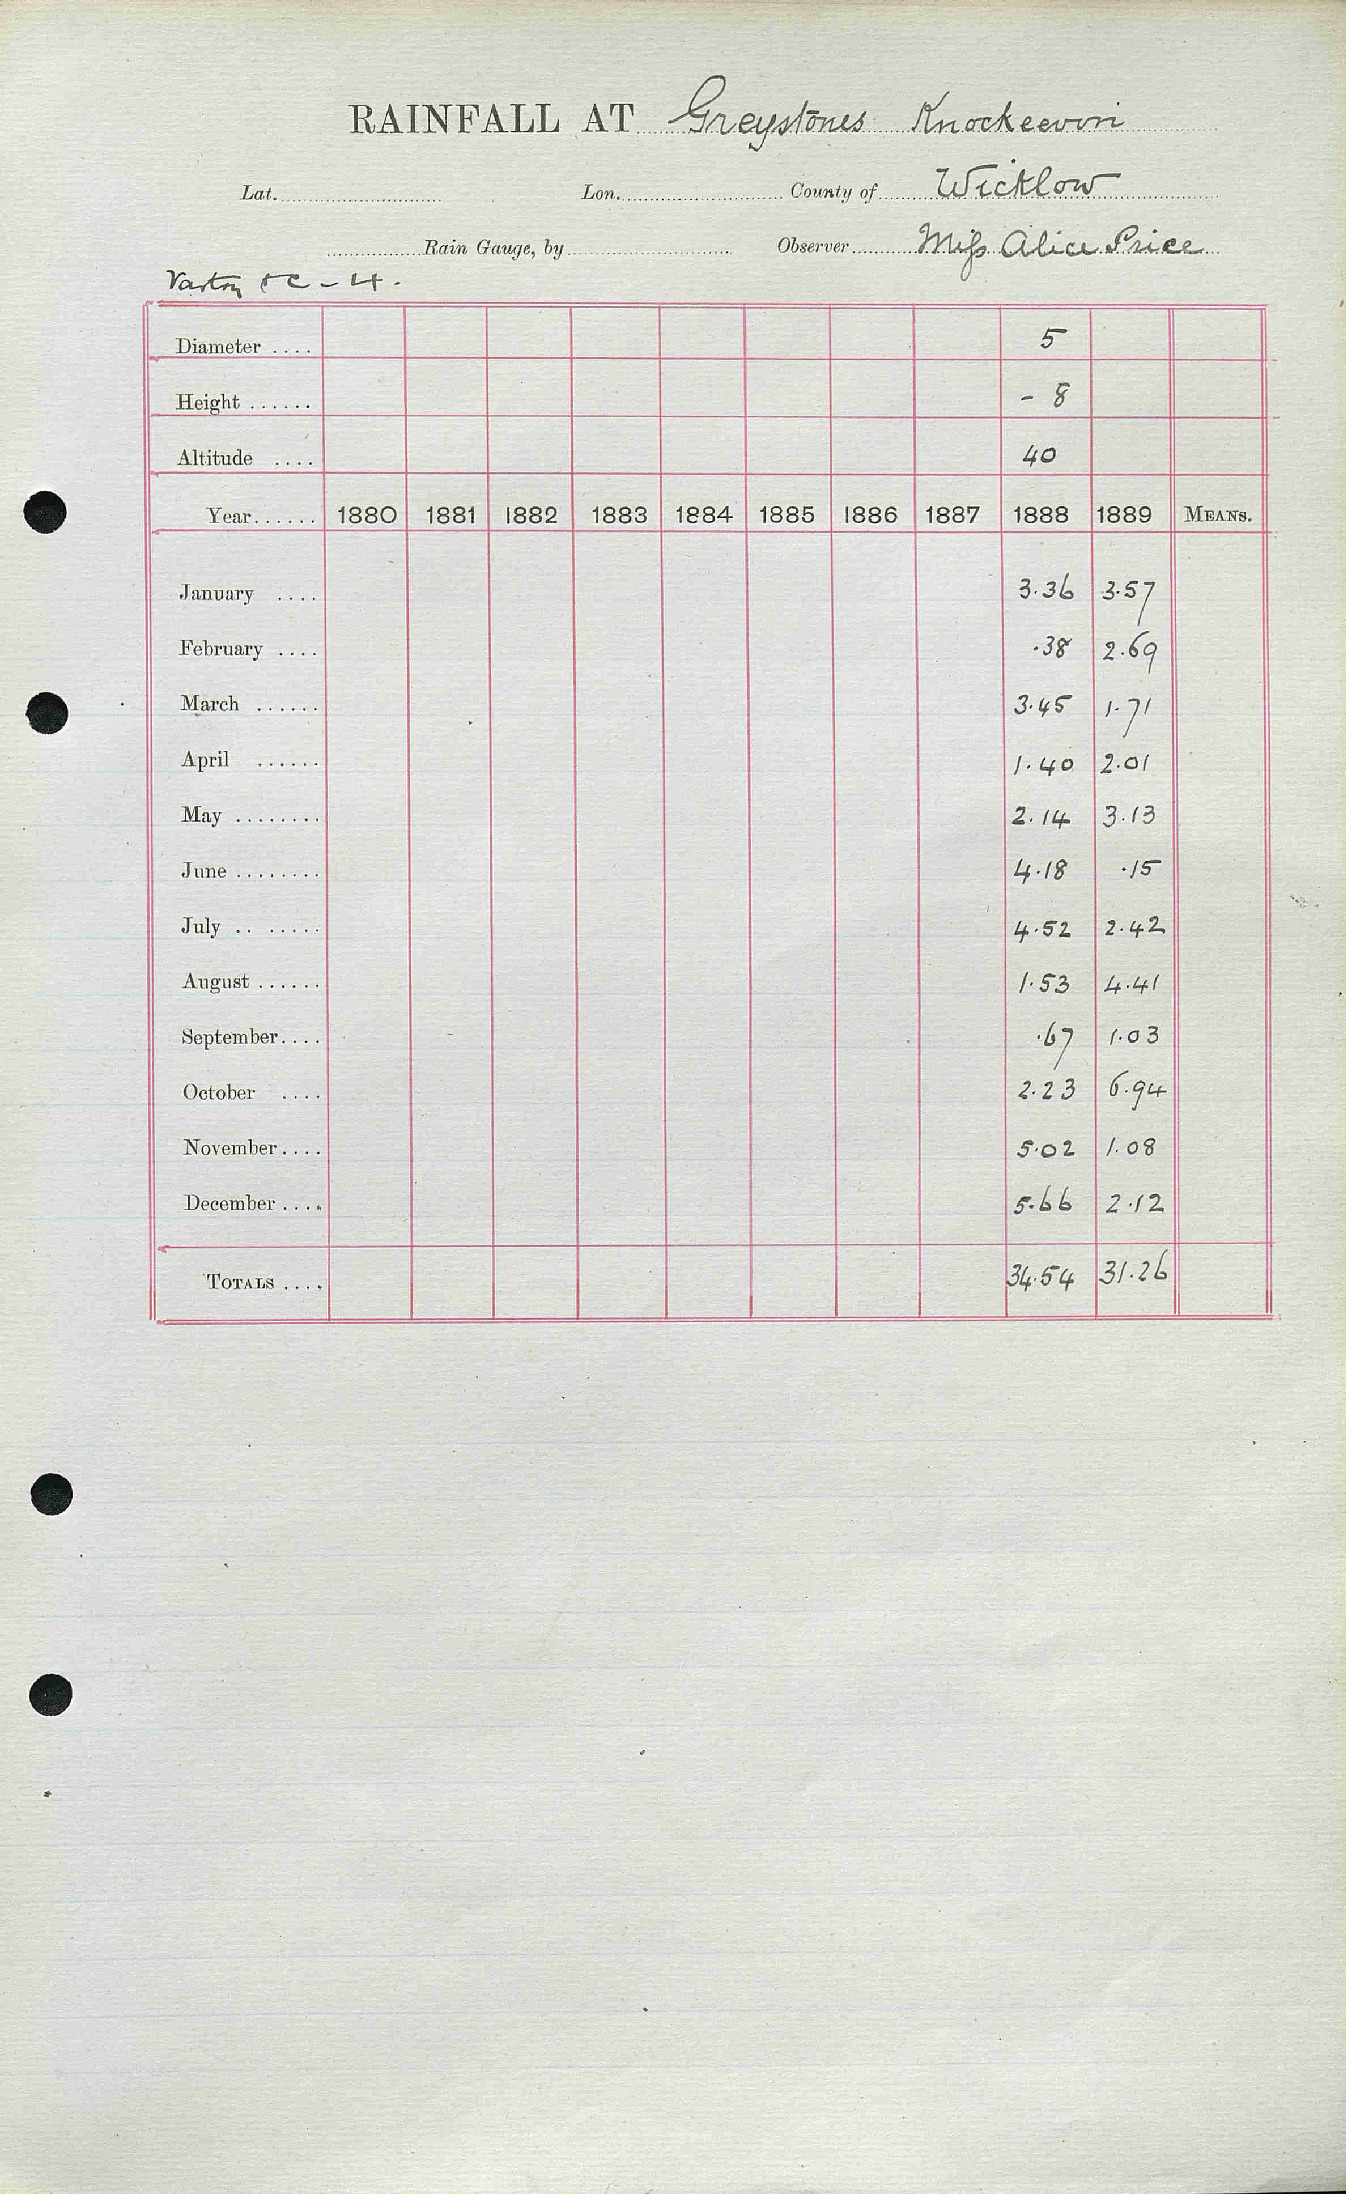 RAINFALL AT Greystones Knockeevin
Lat. Lon. County of Wicklow
Rain Gauge, by Observer Miss Alice Price
Diameter .... 5
Height ...... - 8
Altitude .... 40
Year...... 1880 1881 1882 1883 1884 1885 1886 1887 1888 1889 MEANS.
January .... 3.36 3.57
February .... .38 2.69
March ...... 3.45 1.71
April ...... 1.40 2.01
May ........ 2.14 3.13
June ........ 4.18 .15
July .. ..... 4.52 2.42
August ...... 1.53 4.41
September.... .67 1.03
October .... 2.23 6.94
November.... 5.02 1.08
December .... 5.66 2.12
TOTALS .... 34.54 31.26